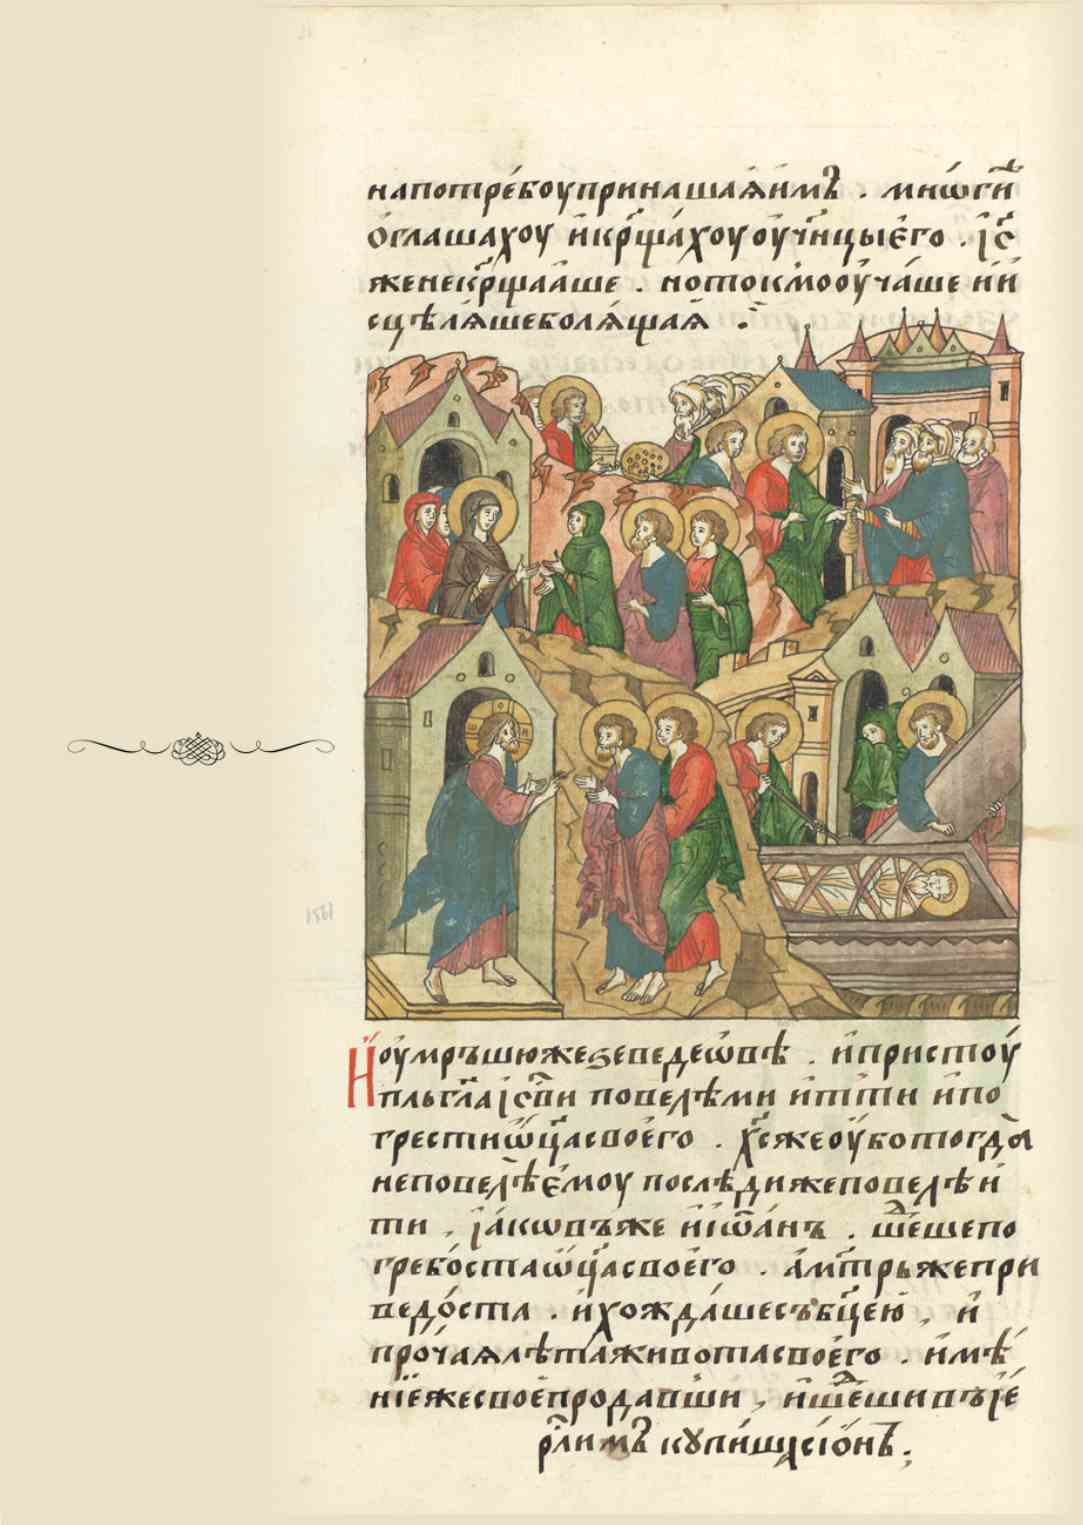 напотре́боуприна́шаѧи́мъ . мно́ги
ѡ҆глаша́хоу и҆кр҃ща́хоу оу҆ч҃ницыє҆го . і҆с҃
женекр҃щаа́ше . нотокмооу҆ча́ше и҆и
сцѣлѧ́шеболѧ́щаѧ .
И҆оумръшюжеꙁеведеѡвѣ . и҆пристоу
пльгл҃аі҆с҃ви повелѣми и҆тти и҆по
грестиѡ҆ц҃асвоего . х҃сжеоу҆ботогда
неповелѣє҆моу послѣдижеповелѣи҆
ти . і҆а́ковъже и҆і҆ѡа́нъ . ше́дшепо
гребо́стаѡ҆ц҃асвоего . а҆мт҃рьжепри
ведо́ста . и҆хожда́шесъбц҃ею , и҆
про́чаѧлѣтаживотасвоего . и҆мѣ́
нїежесвоепрода́вши , и҆ше́дшивъі҆е
рл҃имъ купи́шасїо́нъ .